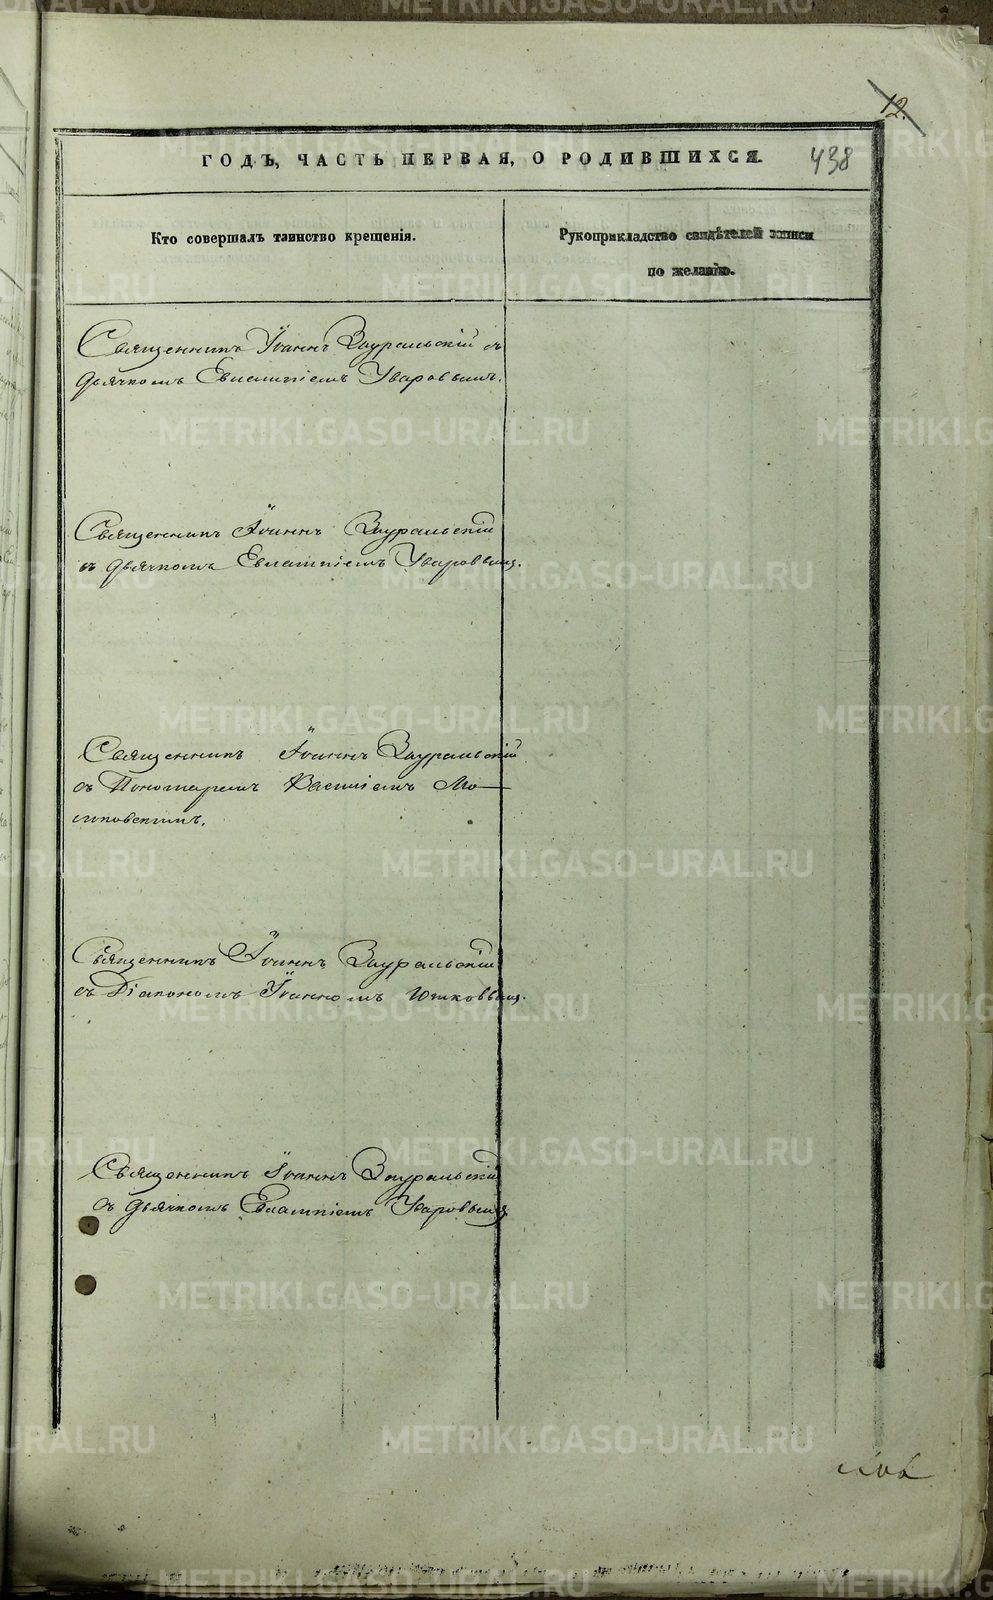 12.
ГОДЪ, ЧАСТЬ ПЕРВАЯ, О РОДИВШИХСЯ.
438
Кто совершалъ таинство крещенія.
Рукоприкладство свидѣтелей записи
по желанію.
Священникъ Іоаннъ Зауральскій съ
дьячкомъ Евлампіемъ Уваровымъ.
Священникъ Іоаннъ Зауральскій
съ дьячкомъ Евлампіемъ Уваровымъ.
Священникъ Іоаннъ Зауральскій
съ Пономаремъ Василіемъ
Священникъ Іоаннъ Зауральскій
съ Діакономъ Іоанномъ Юшковымъ.
Священникъ Іоаннъ Зауральскій
съ дьячкомъ Евлампіемъ Уваровымъ
METRIKI.GASO-URAL.RU